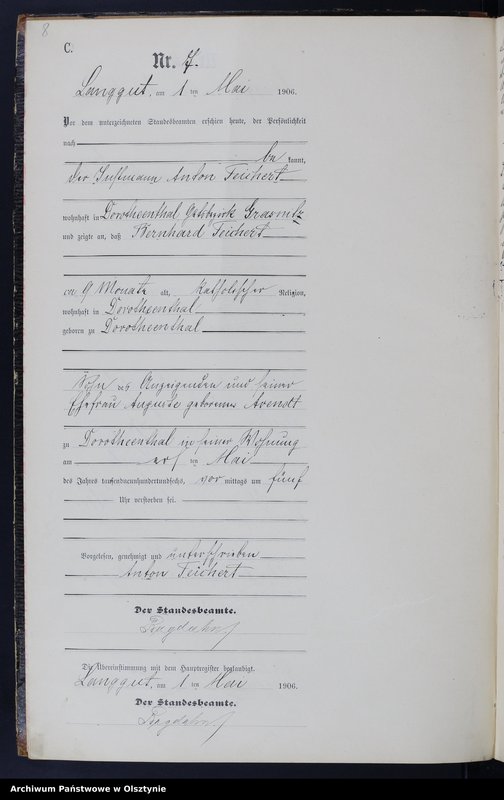 8
C.
Nr. 7.
Langgut, am 1 ten Mai 1906.
Vor dem unterzeichneten Standesbeamten erschien heute, der Persönlichkeit
nach
be kannt,
der Instmann Anton Teichert
wohnhaft in Dorotheenthal Gutsbezirk Grasnitz
und zeigte an, daß Bernhard Teichert
9 Monate alt, katholischer Religion,
wohnhaft in Dorotheenthal
geboren zu Dorotheenthal
Sohn des Anzeigenden und seiner
Ehefrau Auguste geborenen Arendt
zu Dorotheenthal in seiner Wohnung
am ersten Mai
des Jahres tausendneunhundertundsechs, vor mittags um fünf
Uhr verstorben sei.
Vorgelesen, genehmigt und unterschrieben
Anton Teichert
Der Standesbeamte.
Die Übereinstimmung mit dem Hauptregister beglaubigt.
Langgut, am 1 ten Mai 1906.
Der Standesbeamte.
Archiwum Państwowe w Olsztynie